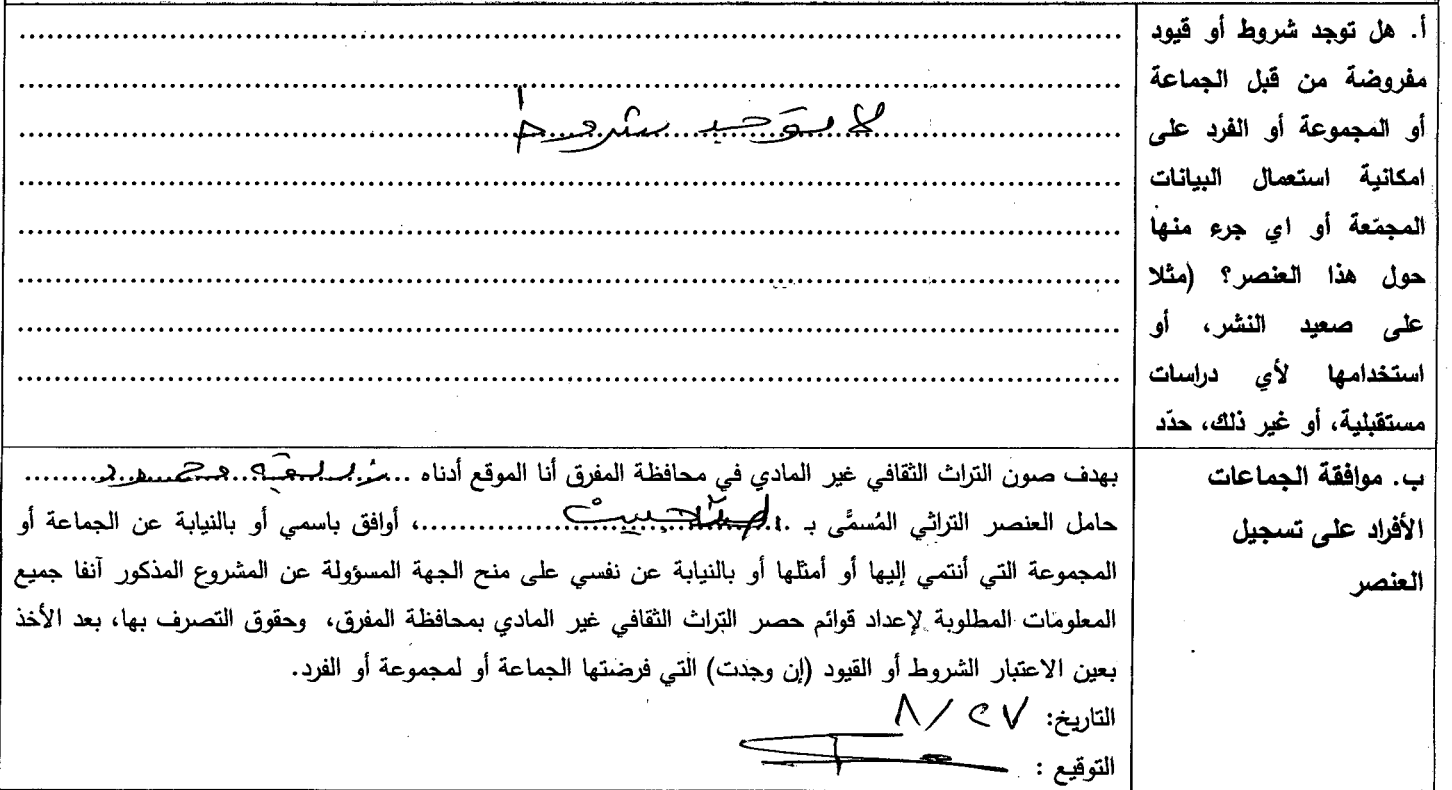 أ. هل توجد شروط أو قيود
مفروضة من قبل الجماعة
أو المجموعة أو الفرد على
امكانية استعمال البيانات
المجمّعة أو اي جرء منها
حول هذا العنصر؟ (مثلا
على صعيد النشر، أو
استخدامها لأي دراسات
مستقبلية، أو غير ذلك، حدّد
لا يوجد شروط
ب. موافقة الجماعات
الأفراد على تسجيل
العنصر
بهدف صون التراث الثقافي غير المادي في محافظة المفرق أنا الموقع أدناه
حامل العنصر التراثي المُسمَّى بـ ، أوافق باسمي أو بالنيابة عن الجماعة أو
المجموعة التي أنتمي إليها أو أمثلها أو بالنيابة عن نفسي على منح الجهة المسؤولة عن المشروع المذكور آنفا جميع
المعلومات المطلوبة لإعداد قوائم حصر التراث الثقافي غير المادي بمحافظة المفرق، وحقوق التصرف بها، بعد الأخذ
بعين الاعتبار الشروط أو القيود (إن وجدت) التي فرضتها الجماعة أو لمجموعة أو الفرد.
التاريخ: ٢٧ / ٨
التوقيع :